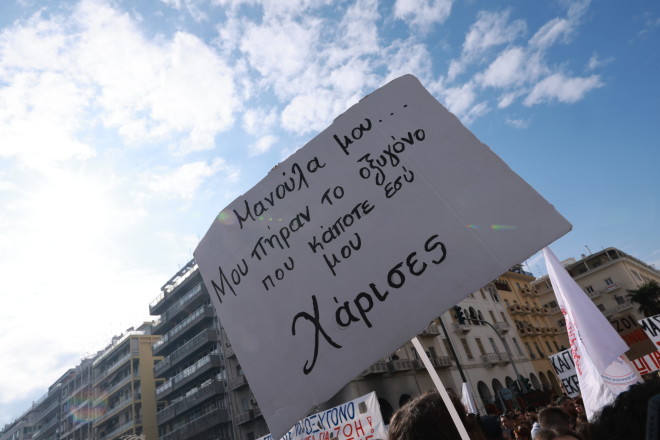 Μανούλα μου...
Μου πήραν το οξυγόνο
που κάποτε εσύ
μου
Χάρισες
ΟΞΥΓΟΝΟ
ΖΩΗ!